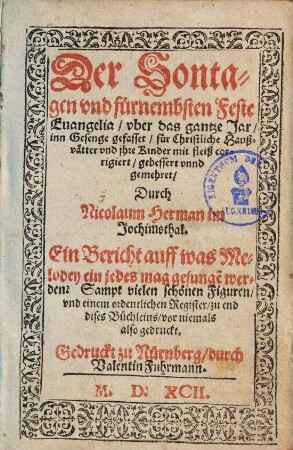 Der Sonta-
gen vnd fürnembsten Feste
Euangelia / vber das gantze Jar /
inn Gesenge gefasset / für Christliche Hauß-
vätter vnd ihre Kinder mit fleiß cor-
rigiert / gebessert vnnd
gemehret /
Durch
Nicolaum Herman im
Jochimsthal.
Ein Bericht auff was Me-
lodey ein jedes mag gesungē wer-
den: Sampt vielen schönen Figuren /
vnd einem ordentlichen Register / zu end
dises Büchleins / vor niemals
also gedruckt.
Gedruckt zu Nürnberg / durch
Valentin Fuhrmann.
M. D. XCII.
EIGENTHUM DE